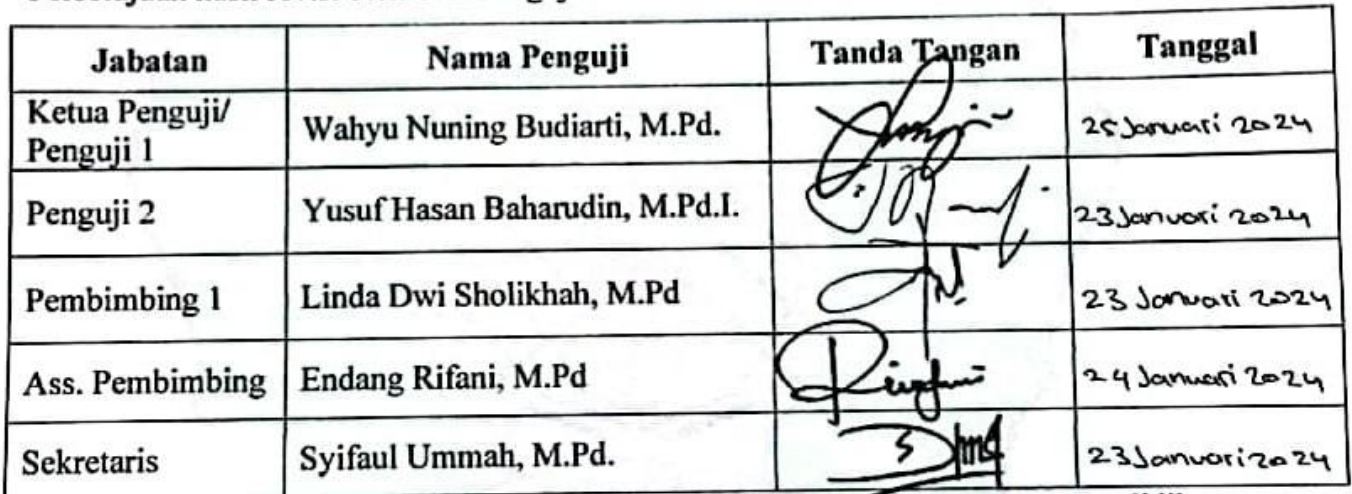 Jabatan Nama Penguji Tanda Tangan Tanggal
Ketua Penguji/
Penguji 1 Wahyu Nuning Budiarti, M.Pd. 25 Januari 2024
Penguji 2 Yusuf Hasan Baharudin, M.Pd.I. 23 Januari 2024
Pembimbing 1 Linda Dwi Sholikhah, M.Pd 23 Januari 2024
Ass. Pembimbing Endang Rifani, M.Pd 24 Januari 2024
Sekretaris Syifaul Ummah, M.Pd. 23 Januari 2024